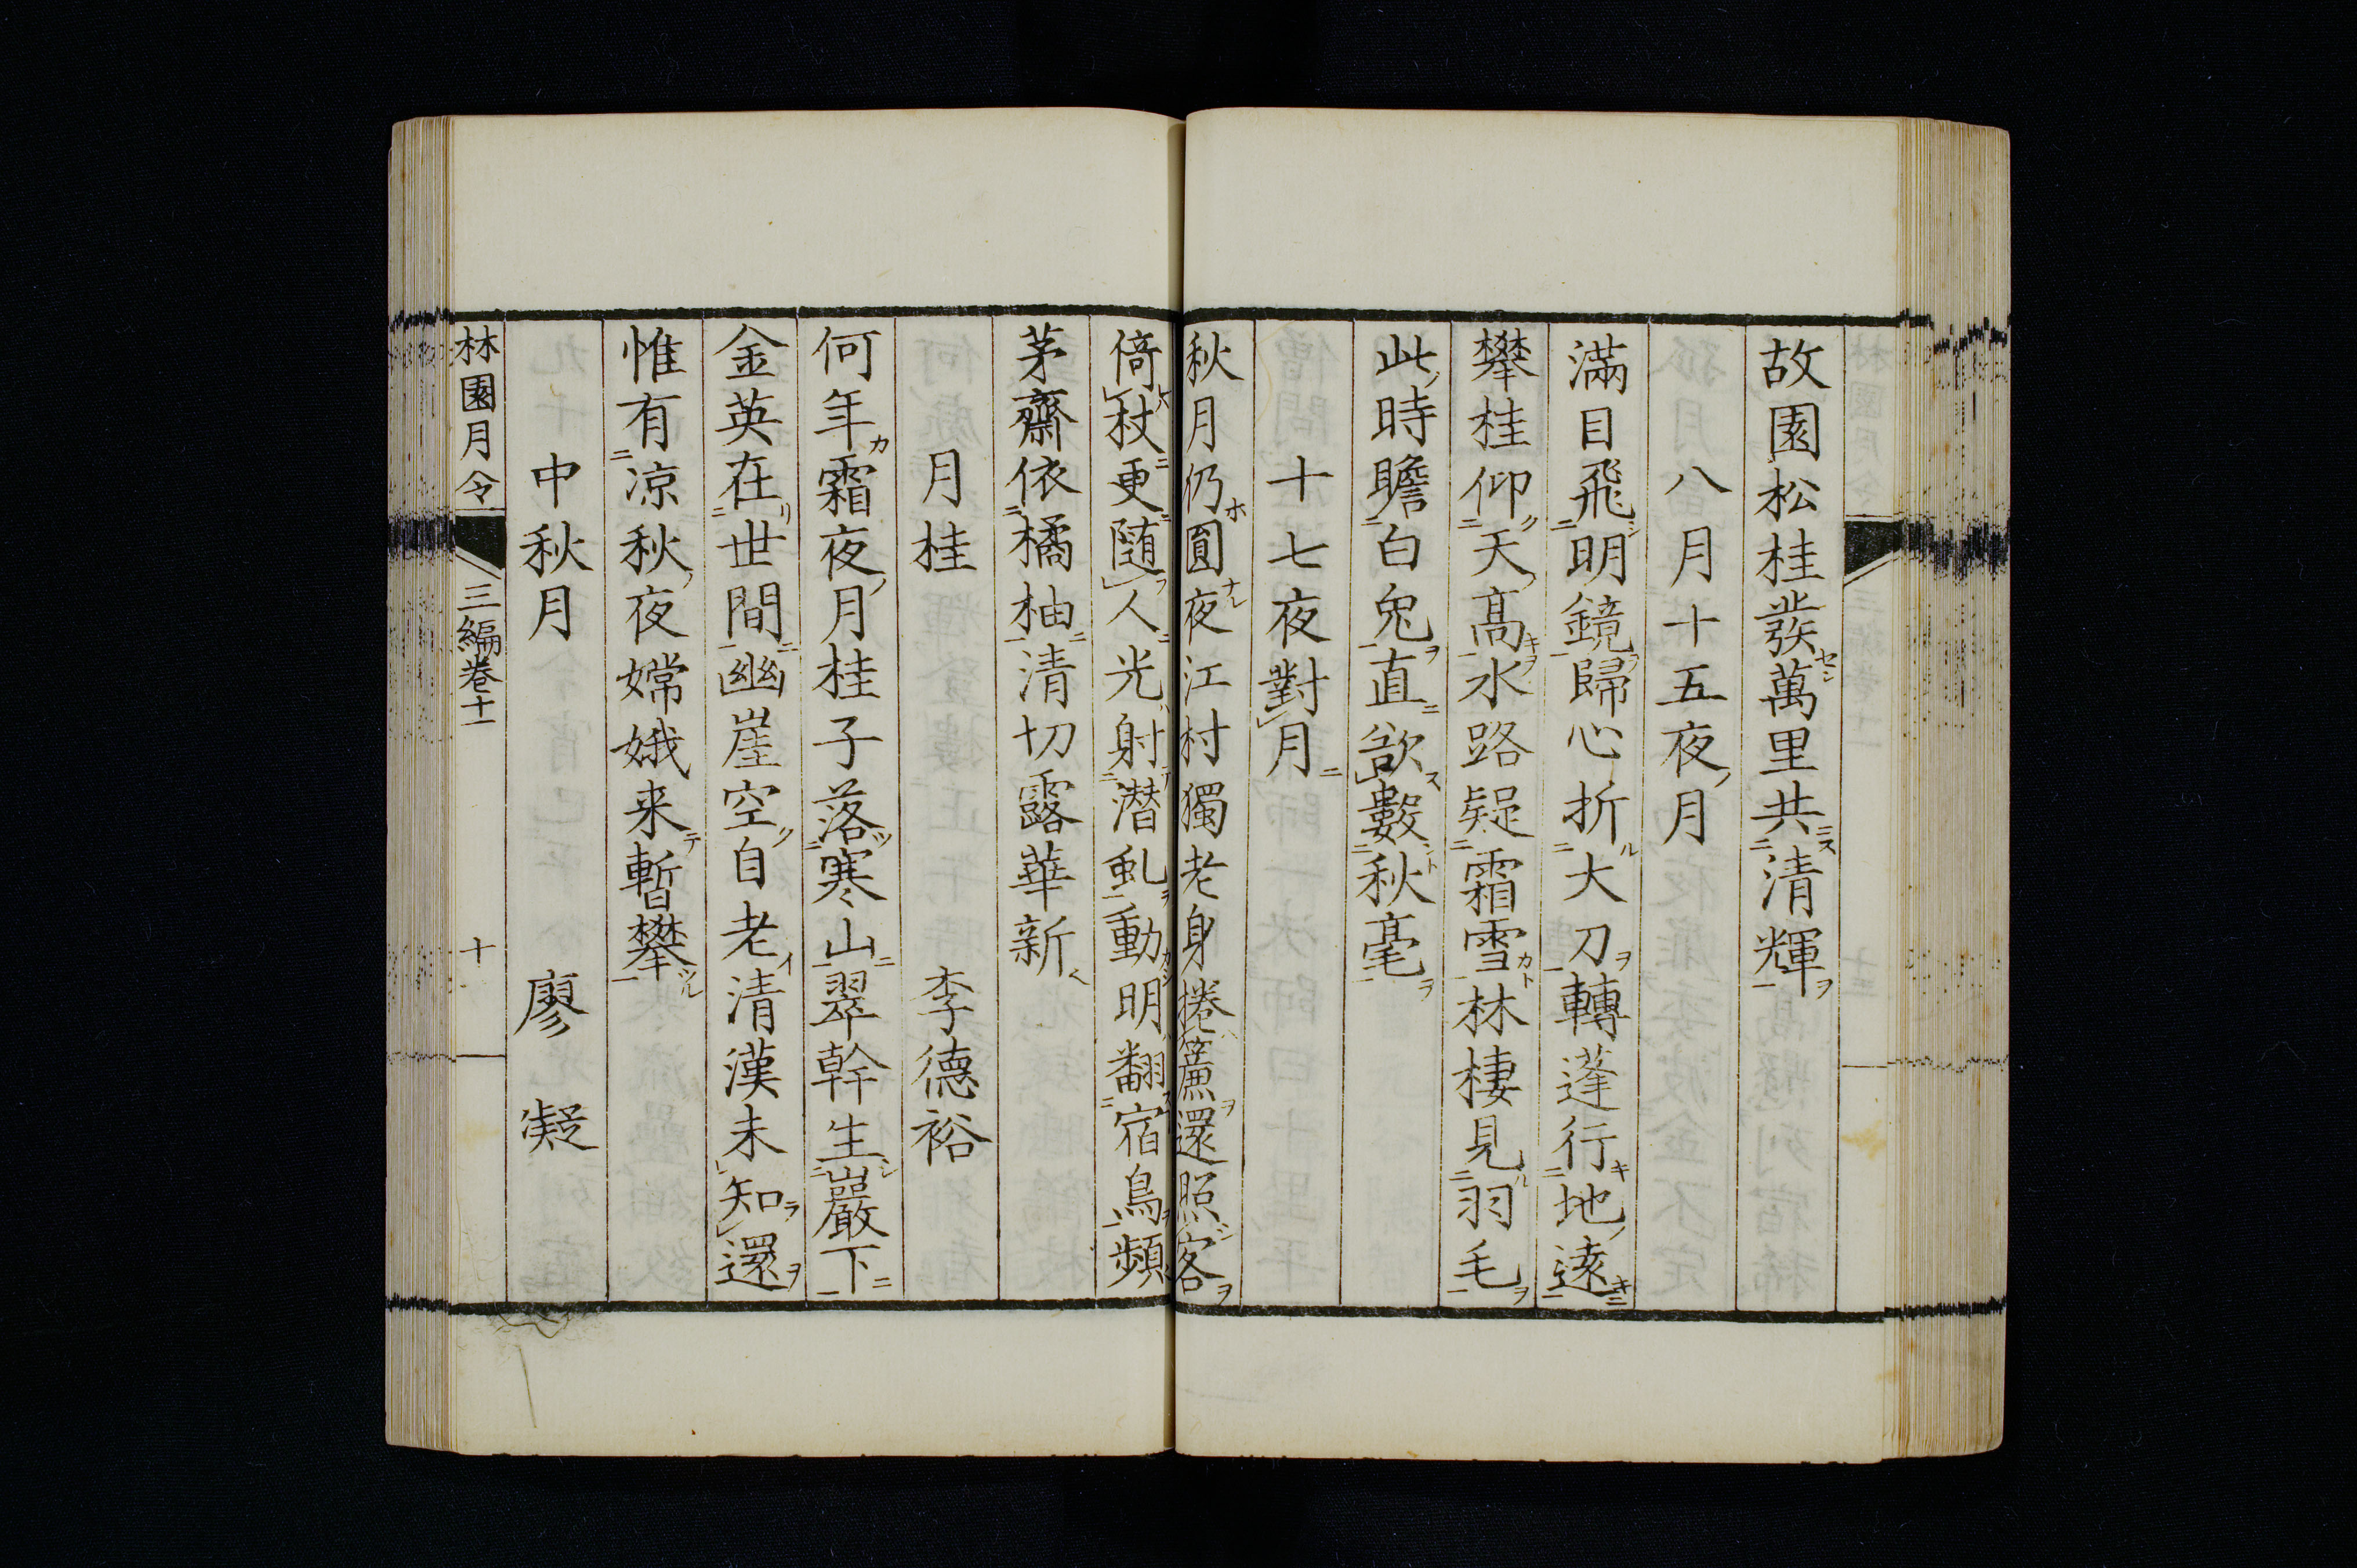 故園松桂發萬里共清輝
八月十五夜月
滿目飛明鏡歸心折大刀轉蓬行地遠
攀桂仰天高水路疑霜雪林棲見羽毛
此時瞻白兔直欲數秋毫
十七夜對月
秋月仍圓夜江村獨老身捲簾還照客
倚杖更隨人光射潛虬動明翻宿鳥頻
茅齋依橘柚清切露華新
月桂 李德裕
何年霜夜月桂子落寒山翠幹生巖下
金英在世間幽崖空自老清漢未知還
惟有凉秋夜嫦娥来暫攀
中秋月 廖凝
林園月令 三編卷十一 十